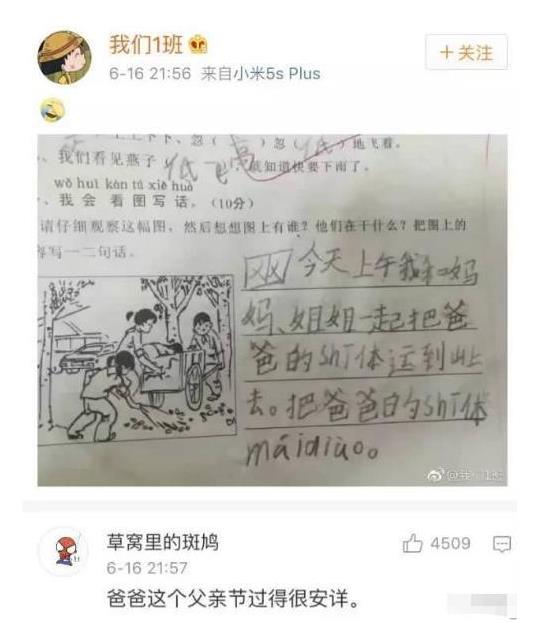 我们1班
+关注
6-16 21:56 来自小米5s Plus
上上下下、忽（高）忽（低）地飞着。
、我们看见燕子低飞，就知道快要下雨了。
wǒ huì kàn tú xiě huà
、我会看图写话。（10分）
请仔细观察这幅图，然后想想图上有谁？他们在干什么？把图上的
容写一二句话。
今天上午我和妈
妈、姐姐一起把爸
爸的shī体运到山上
去。把爸爸的shī体
máidiào。
@我们1班
草窝里的斑鸠
4509
6-16 21:57
爸爸这个父亲节过得很安详。